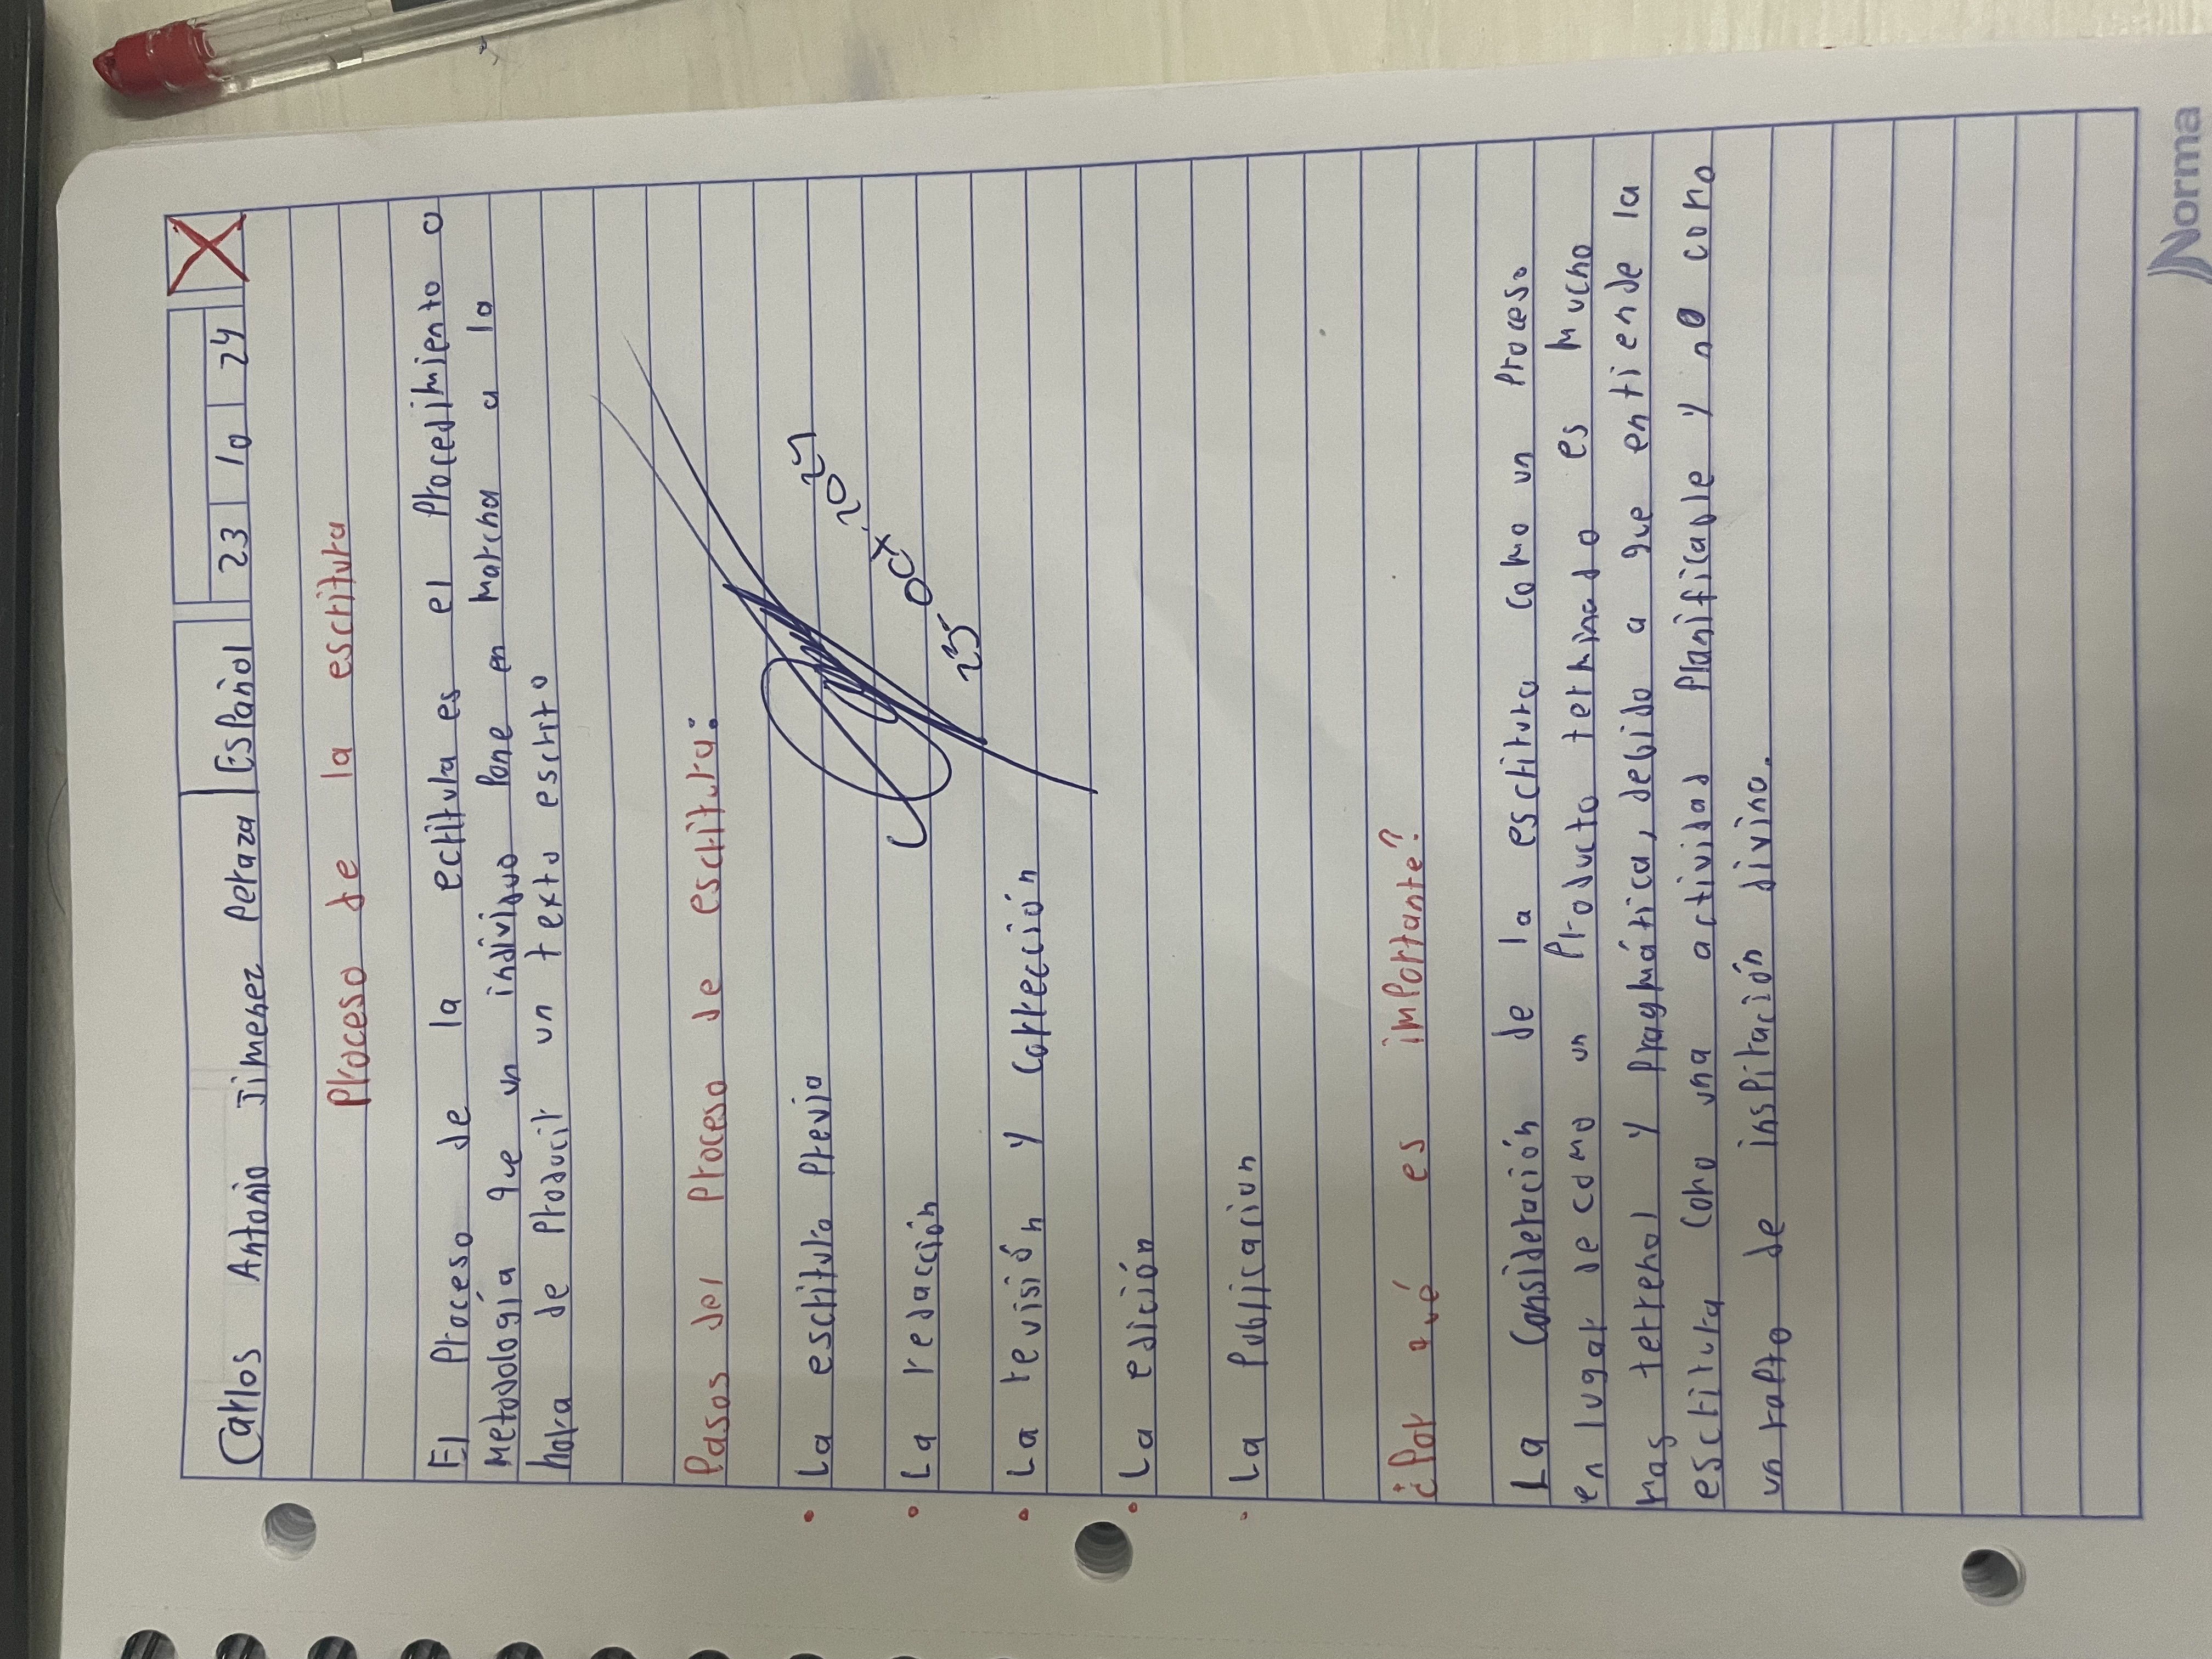 Carlos Antonio Jimenez Peraza Español 23 10 24
Proceso de la escritura
El Proceso de la ectitura es el Procedimiento o
Metodología que un individuo Pone en Marcha a la
hora de Producir un texto escrito
Pasos del Proceso de escritura:
La escritura Previa
La redacción
23 oct 2024
La revisión y Corrección
La edición
La Publicacion
¿Por qué es importante?
La Consideración de la escritura como un Proceso
en lugar de como un Producto terminado es Mucho
mas terrenal y Pragmática, debido a que entiende la
escritura como una actividad Planificable y no como
un rapto de inspiración divino.
Norma